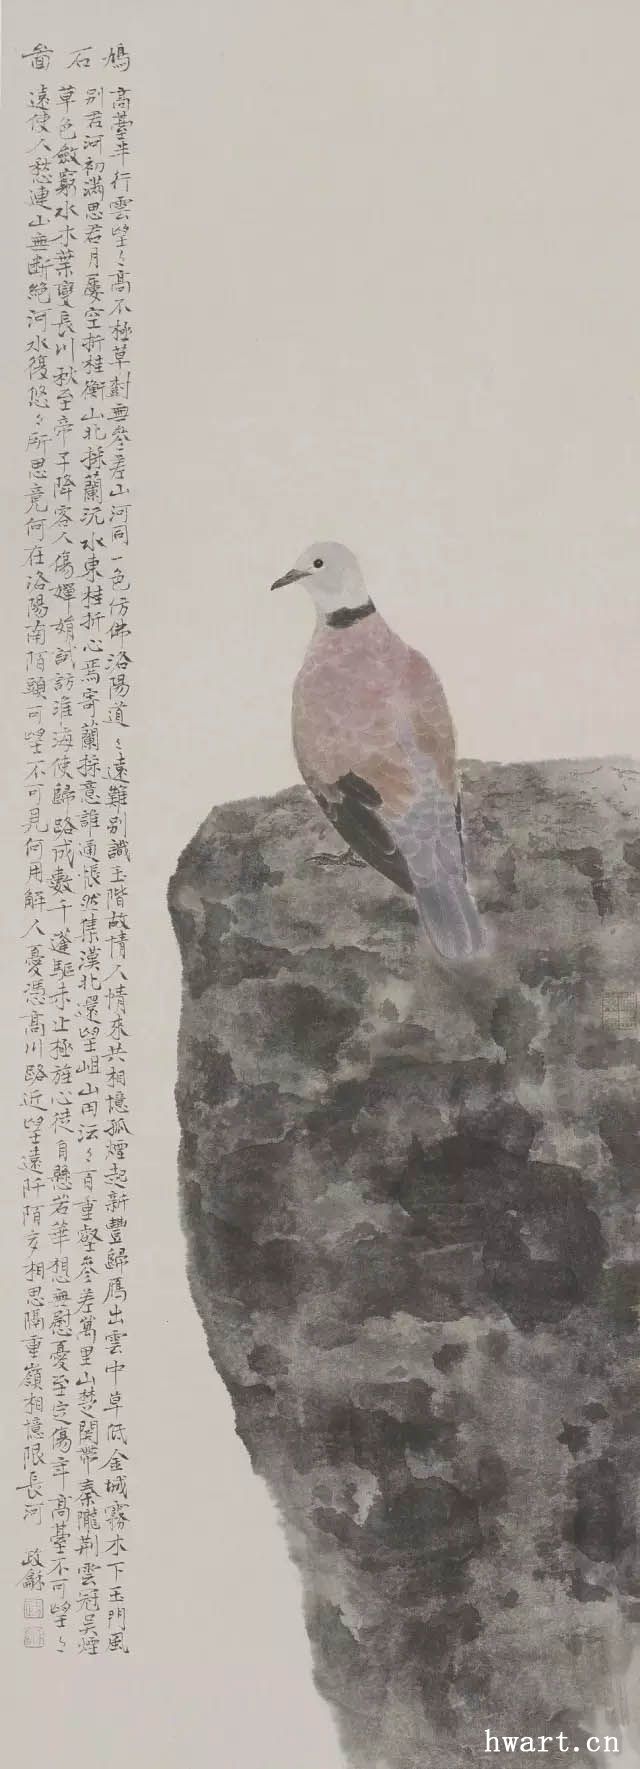 鳩石啚
高臺半行雲望々高不極草對無參差山河同一色仿佛洛陽道々遠難別識玉階故情人情來共相憶孤煙起新豐歸鴈出雲中草低金城霧木下玉門風
別君河初滿思君月屢空折桂衡山北採蘭沅水東桂折心焉寄蘭採意誰通悵然集漢北還望岨山田沄々百重壑參差萬里山楚関帶秦隴荆雲冠吳煙
草色斂窮水木葉變長川秋至帝子降客人傷嬋娟試訪淮海使歸路成數千蓬驅未止極旌心徒自懸若華想無慰憂至定傷年高臺不可望々
遠使人愁連山無断絶河水復悠々所思竟何在洛陽南陌頭可望不可見何用解人憂憑高川路近望遠阡陌多相思隔重嶺相憶限長河 政龢
hwart.cn